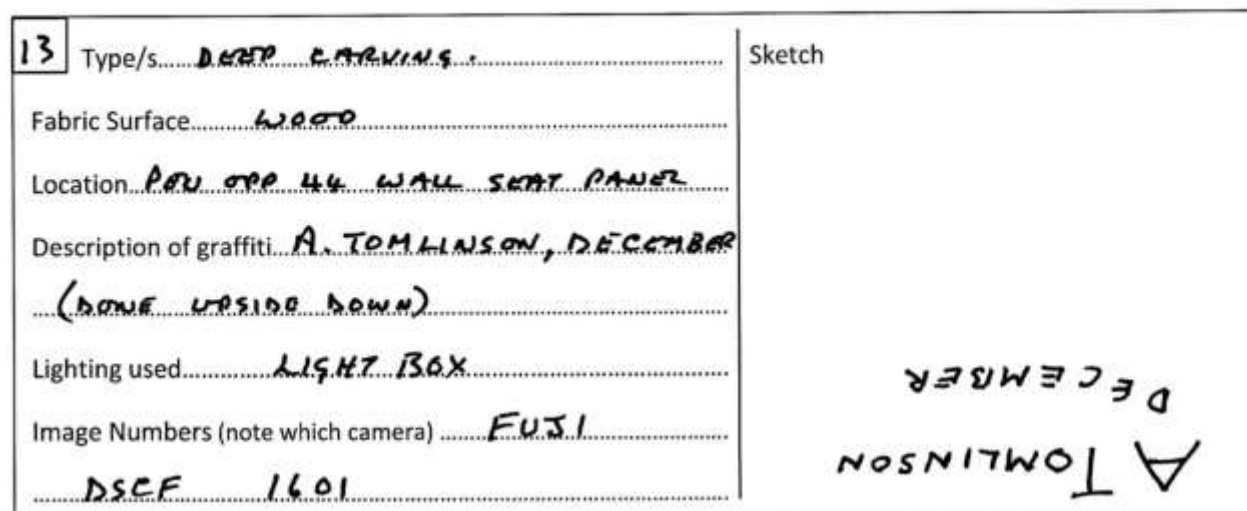 13 Type/s DEEP CARVING.
Fabric Surface WOOD
Location PEW OPP 44 WALL SEAT PANEL
Description of graffiti A. TOMLINSON, DECEMBER
(DONE UPSIDE DOWN)
Lighting used LIGHT BOX
Image Numbers (note which camera) FUJI
DSCF 1601
Sketch
A TOMLINSON
DECEMBER